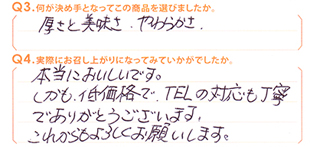 Q3.何が決め手となってこの商品を選びましたか。
厚さと美味さ.やわらかさ.
Q4.実際にお召し上がりになってみていかがでしたか。
本当においしいです。
しかも、低価格で、TELの対応も丁寧
でありがとうございます。
これからもよろしくお願いします。